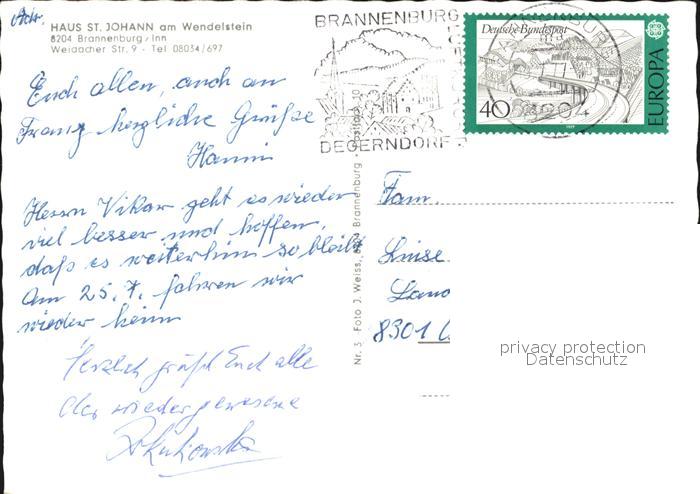 Adr.
HAUS ST. JOHANN am Wendelstein
8204 Brannenburg/Inn
Weidacher Str. 9 - Tel 08034/697
Euch allen, auch an
Franz herzliche Grüße
Hanni
Herrn Vikar geht es wieder
viel besser und hoffen,
daß es weiterhin so bleibt
Am 25. 7. fahren wir
wieder heim
Herzlich grüßt Euch alle
der wiedergenesene
BRANNENBURG
DEGERNDORF
8204
Deutsche Bundespost
40
EUROPA
Nr. 3 Foto J. Weiss, Brannenburg
Fam.
Luise
Land
8301
privacy protection
Datenschutz